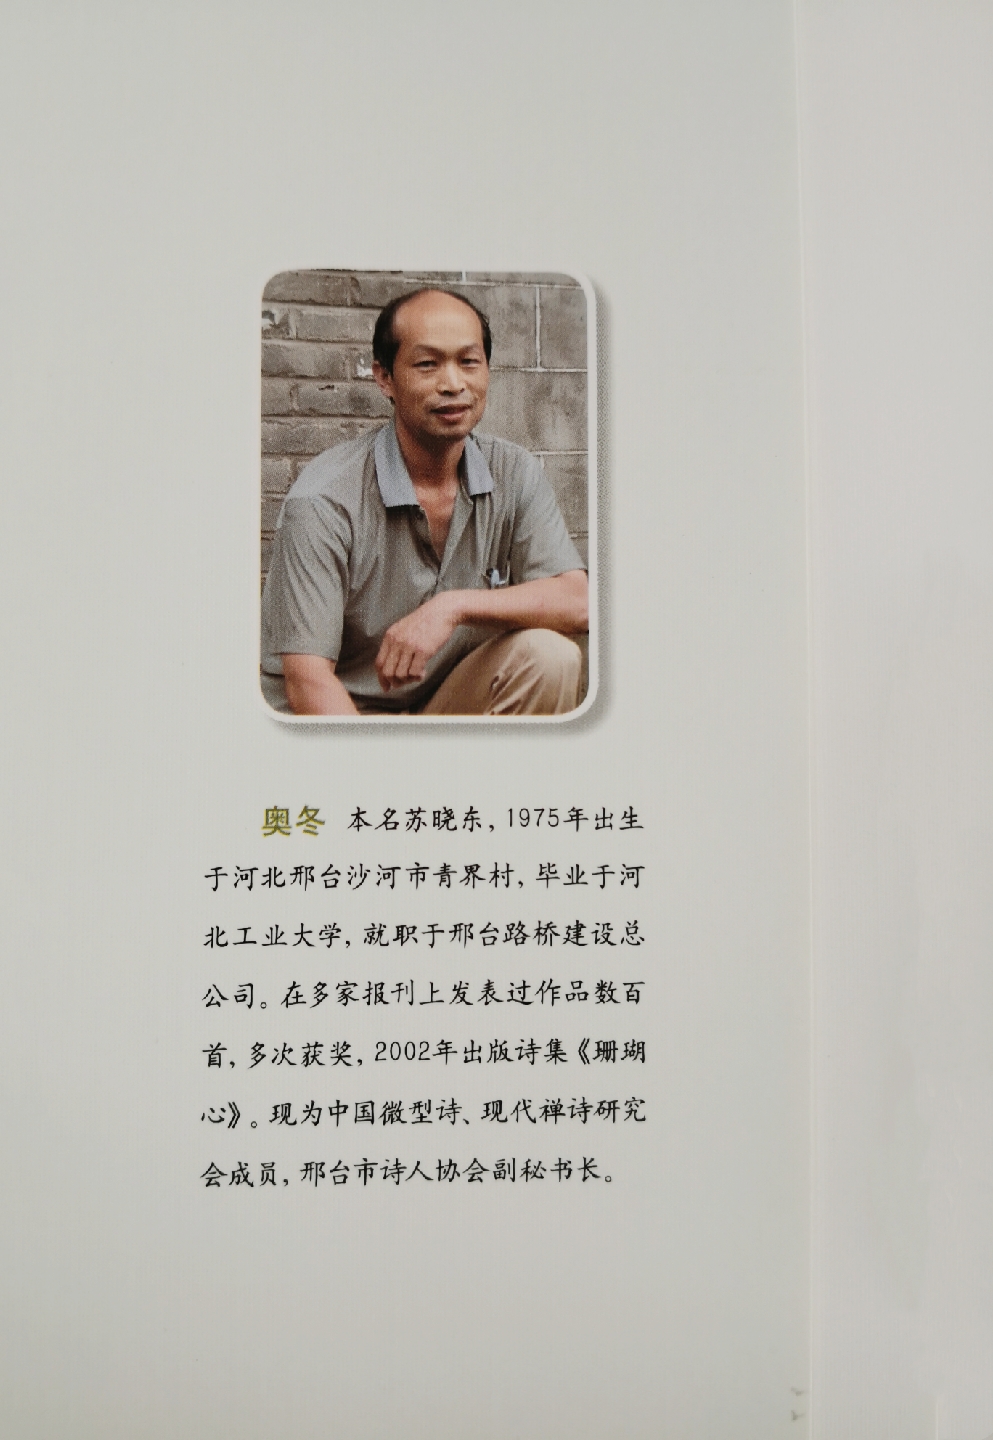 奥冬 本名苏晓东，1975年出生
于河北邢台沙河市青界村，毕业于河
北工业大学，就职于邢台路桥建设总
公司。在多家报刊上发表过作品数百
首，多次获奖，2002年出版诗集《珊瑚
心》。现为中国微型诗、现代禅诗研究
会成员，邢台市诗人协会副秘书长。